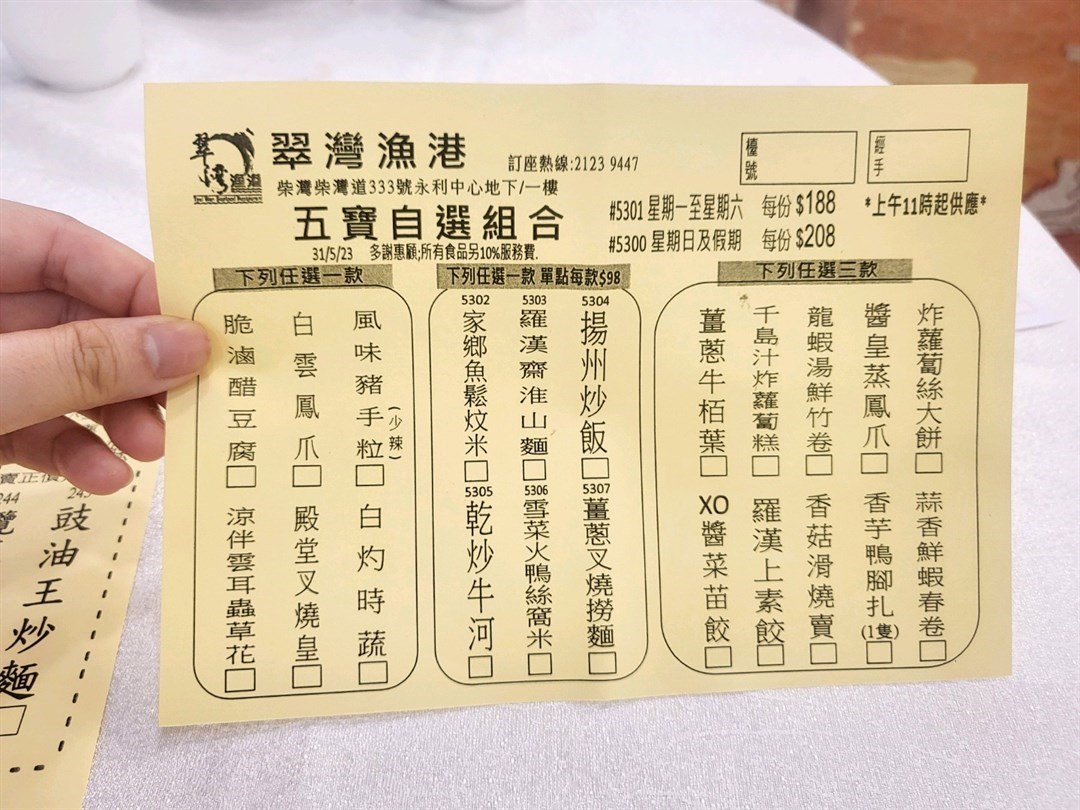 翠灣漁港
翠灣漁港
訂座熱線:2123 9447
檯號
經手
柴灣柴灣道333號永利中心地下/一樓
五寶自選組合
#5301 星期一至星期六 每份 $188
*上午11時起供應*
#5300 星期日及假期 每份 $208
31/5/23 多謝惠顧;所有食品另10%服務費.
下列任選一款
風味豬手粒(少辣)
白雲鳳爪
脆滷醋豆腐
白灼時蔬
殿堂叉燒皇
涼伴雲耳蟲草花
下列任選一款 單點每款$98
5302
家鄉魚鬆炆米
5303
羅漢齋淮山麵
5304
揚州炒飯
5305
乾炒牛河
5306
雪菜火鴨絲窩米
5307
薑蔥叉燒撈麵
下列任選三款
炸蘿蔔絲大餅
醬皇蒸鳳爪
龍蝦湯鮮竹卷
千島汁炸蘿蔔糕
薑蔥牛栢葉
蒜香鮮蝦春卷
香芋鴨腳扎(1隻)
香菇滑燒賣
羅漢上素餃
XO醬菜苗餃
244
豉油王炒麵